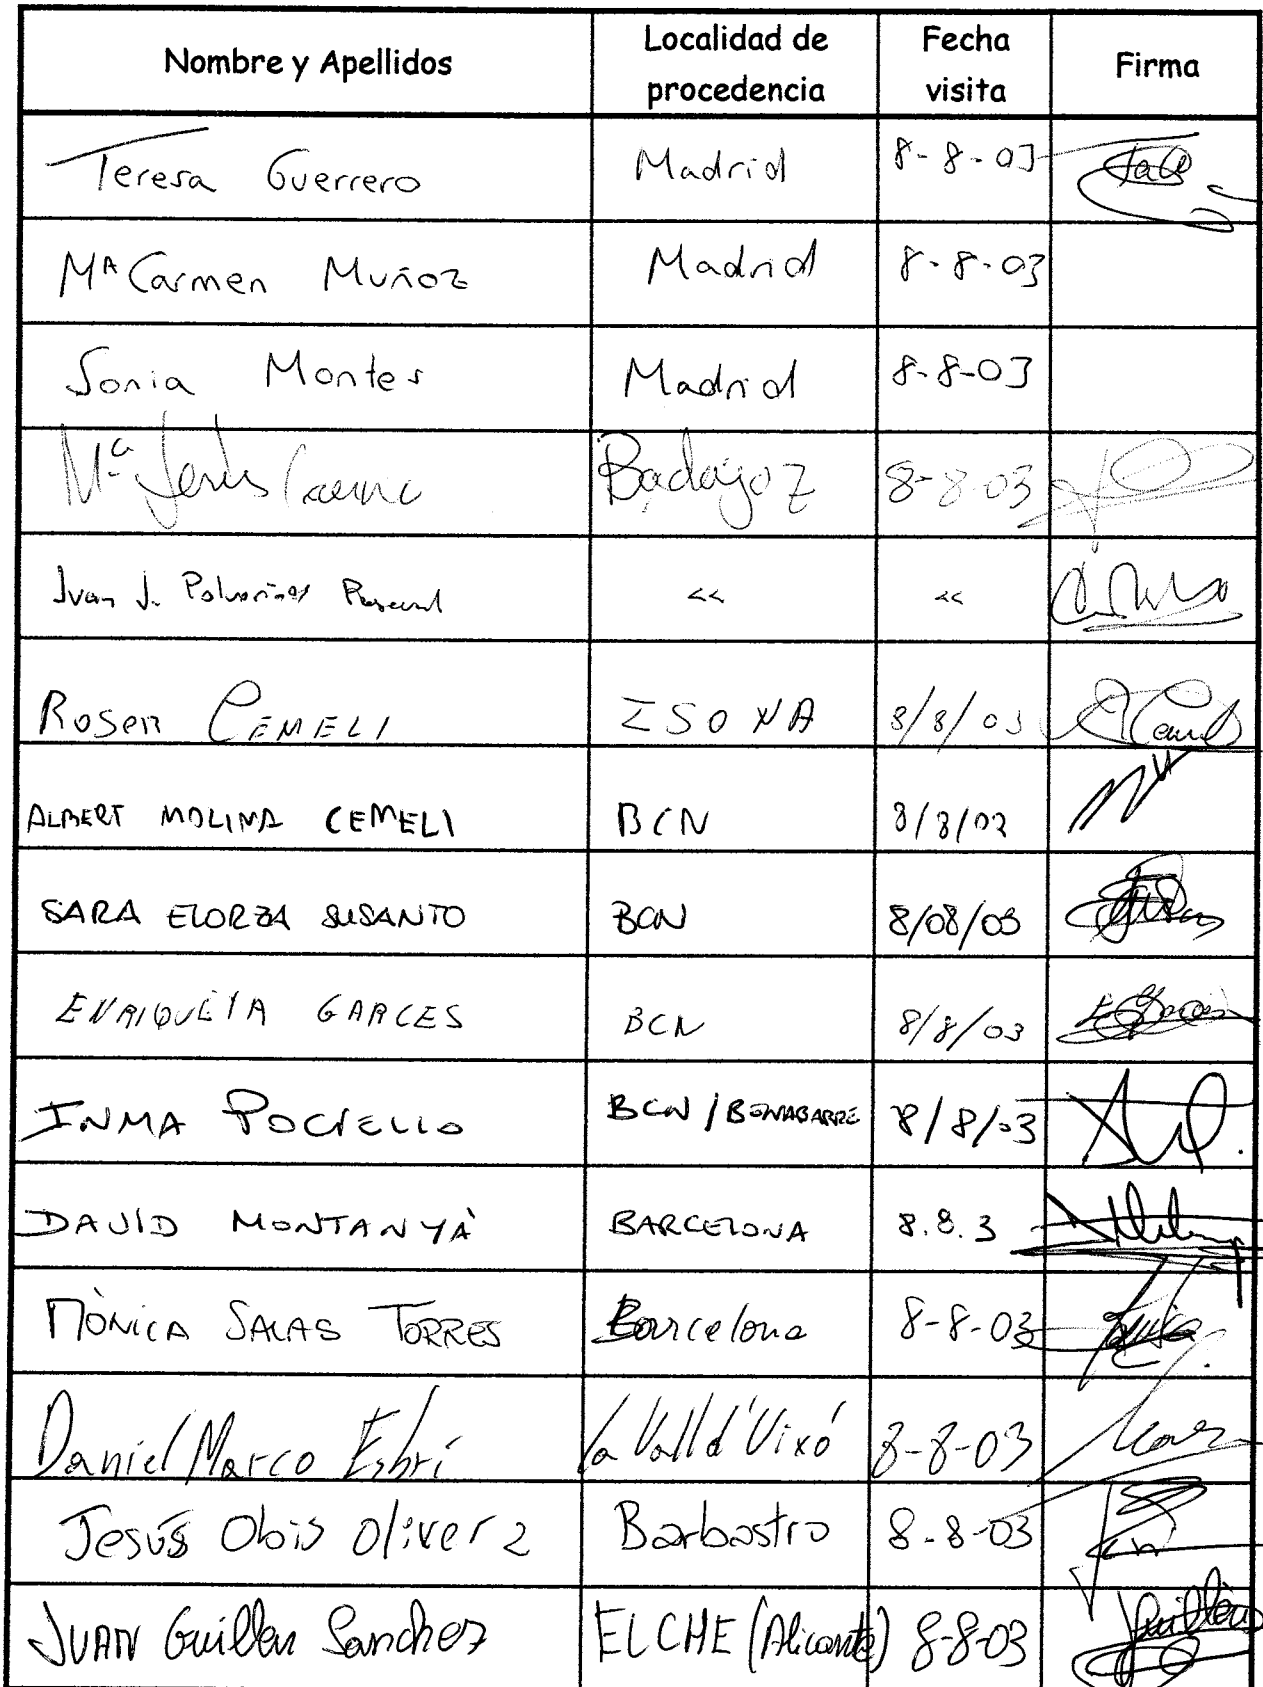 Nombre y Apellidos Localidad de procedencia Fecha visita Firma
Teresa Guerrero Madrid 8-8-03
Mª Carmen Muñoz Madrid 8-8-03
Sonia Montes Madrid 8-8-03
Mª Jesús Badajoz 8-8-03
Juan J. << <<
Rosen CEMELI ISONA 8/8/03
ALBERT MOLINA CEMELI BCN 8/8/03
SARA ELORZA SUSANTO BCN 8/08/03
ENRIQUETA GARCES BCN 8/8/03
INMA POCIELLO BCN / BENABARRE 8/8/03
DAVID MONTANYÀ BARCELONA 8.8.3
MÒNICA SALAS TORRES Barcelona 8-8-03
Daniel Marco Esbrí la Vall d'Uixó 8-8-03
Jesús Obis Olivera Barbastro 8-8-03
JUAN Guillen Sanchez ELCHE (Alicante) 8-8-03 Guillén